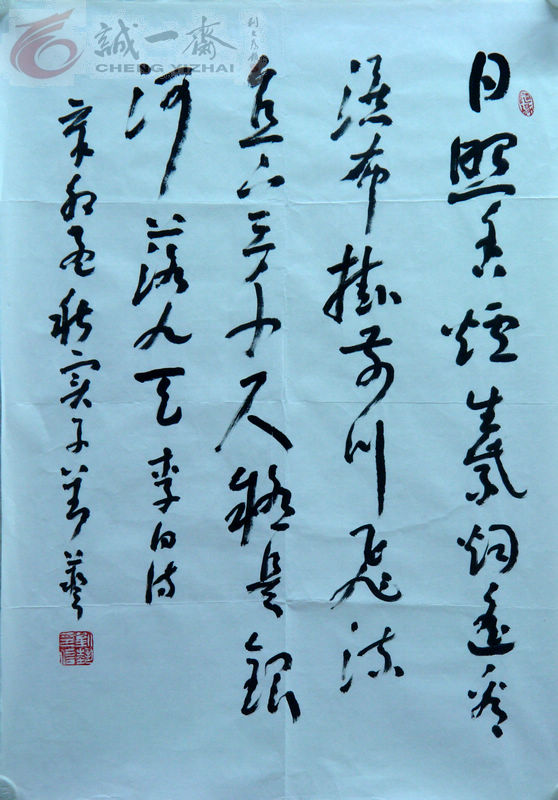 誠一齋
CHENG YIZHAI
日照香爐生紫烟遥看
瀑布掛前川飛流
直下三千尺疑是銀
河落九天 李白詩
辛卯孟秋